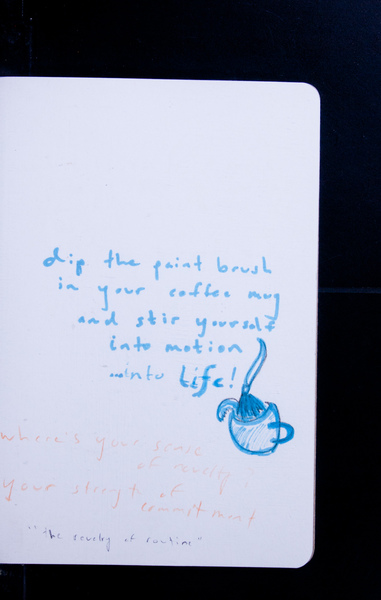 dip the paint brush
in your coffee mug
and stir yourself
into motion
...into life!
where's your sense
of revelry,
your strength of
commitment
"the revelry of routine"